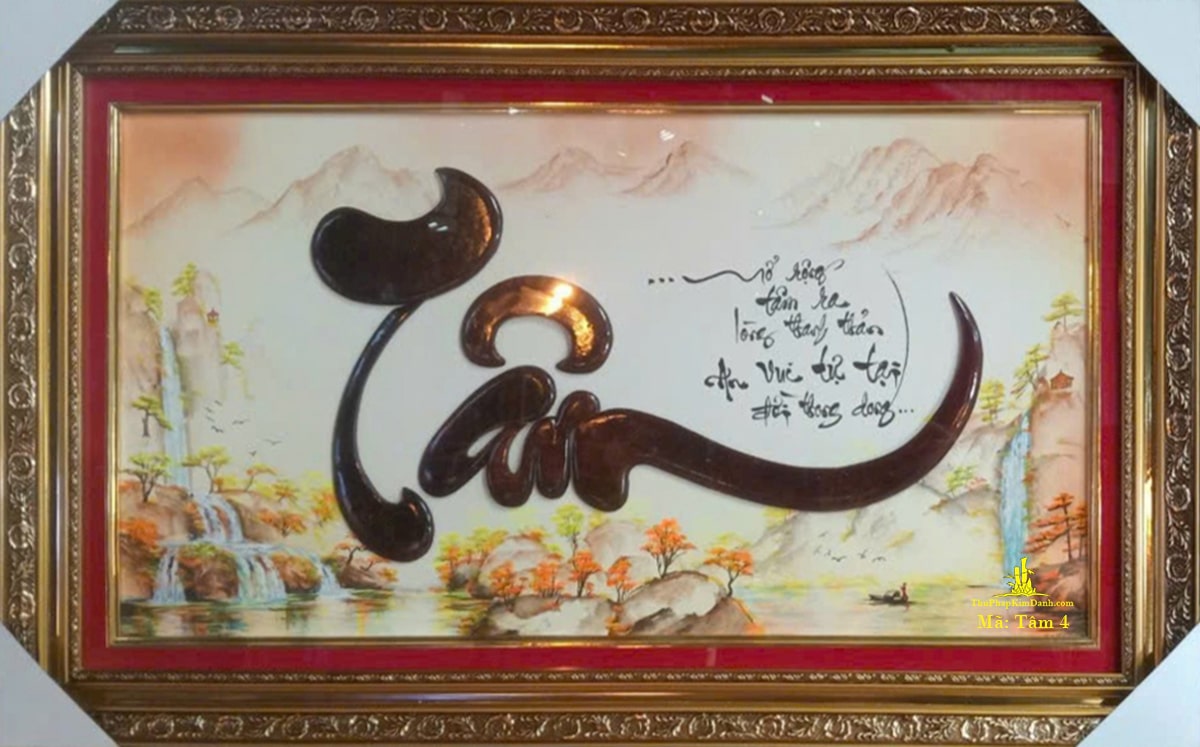 Tâm
... Mở rộng
tâm ra
lòng thanh thản
An vui tự tại
đời thong dong...
ThuPhapKimDanh.com
Mã: Tâm 4